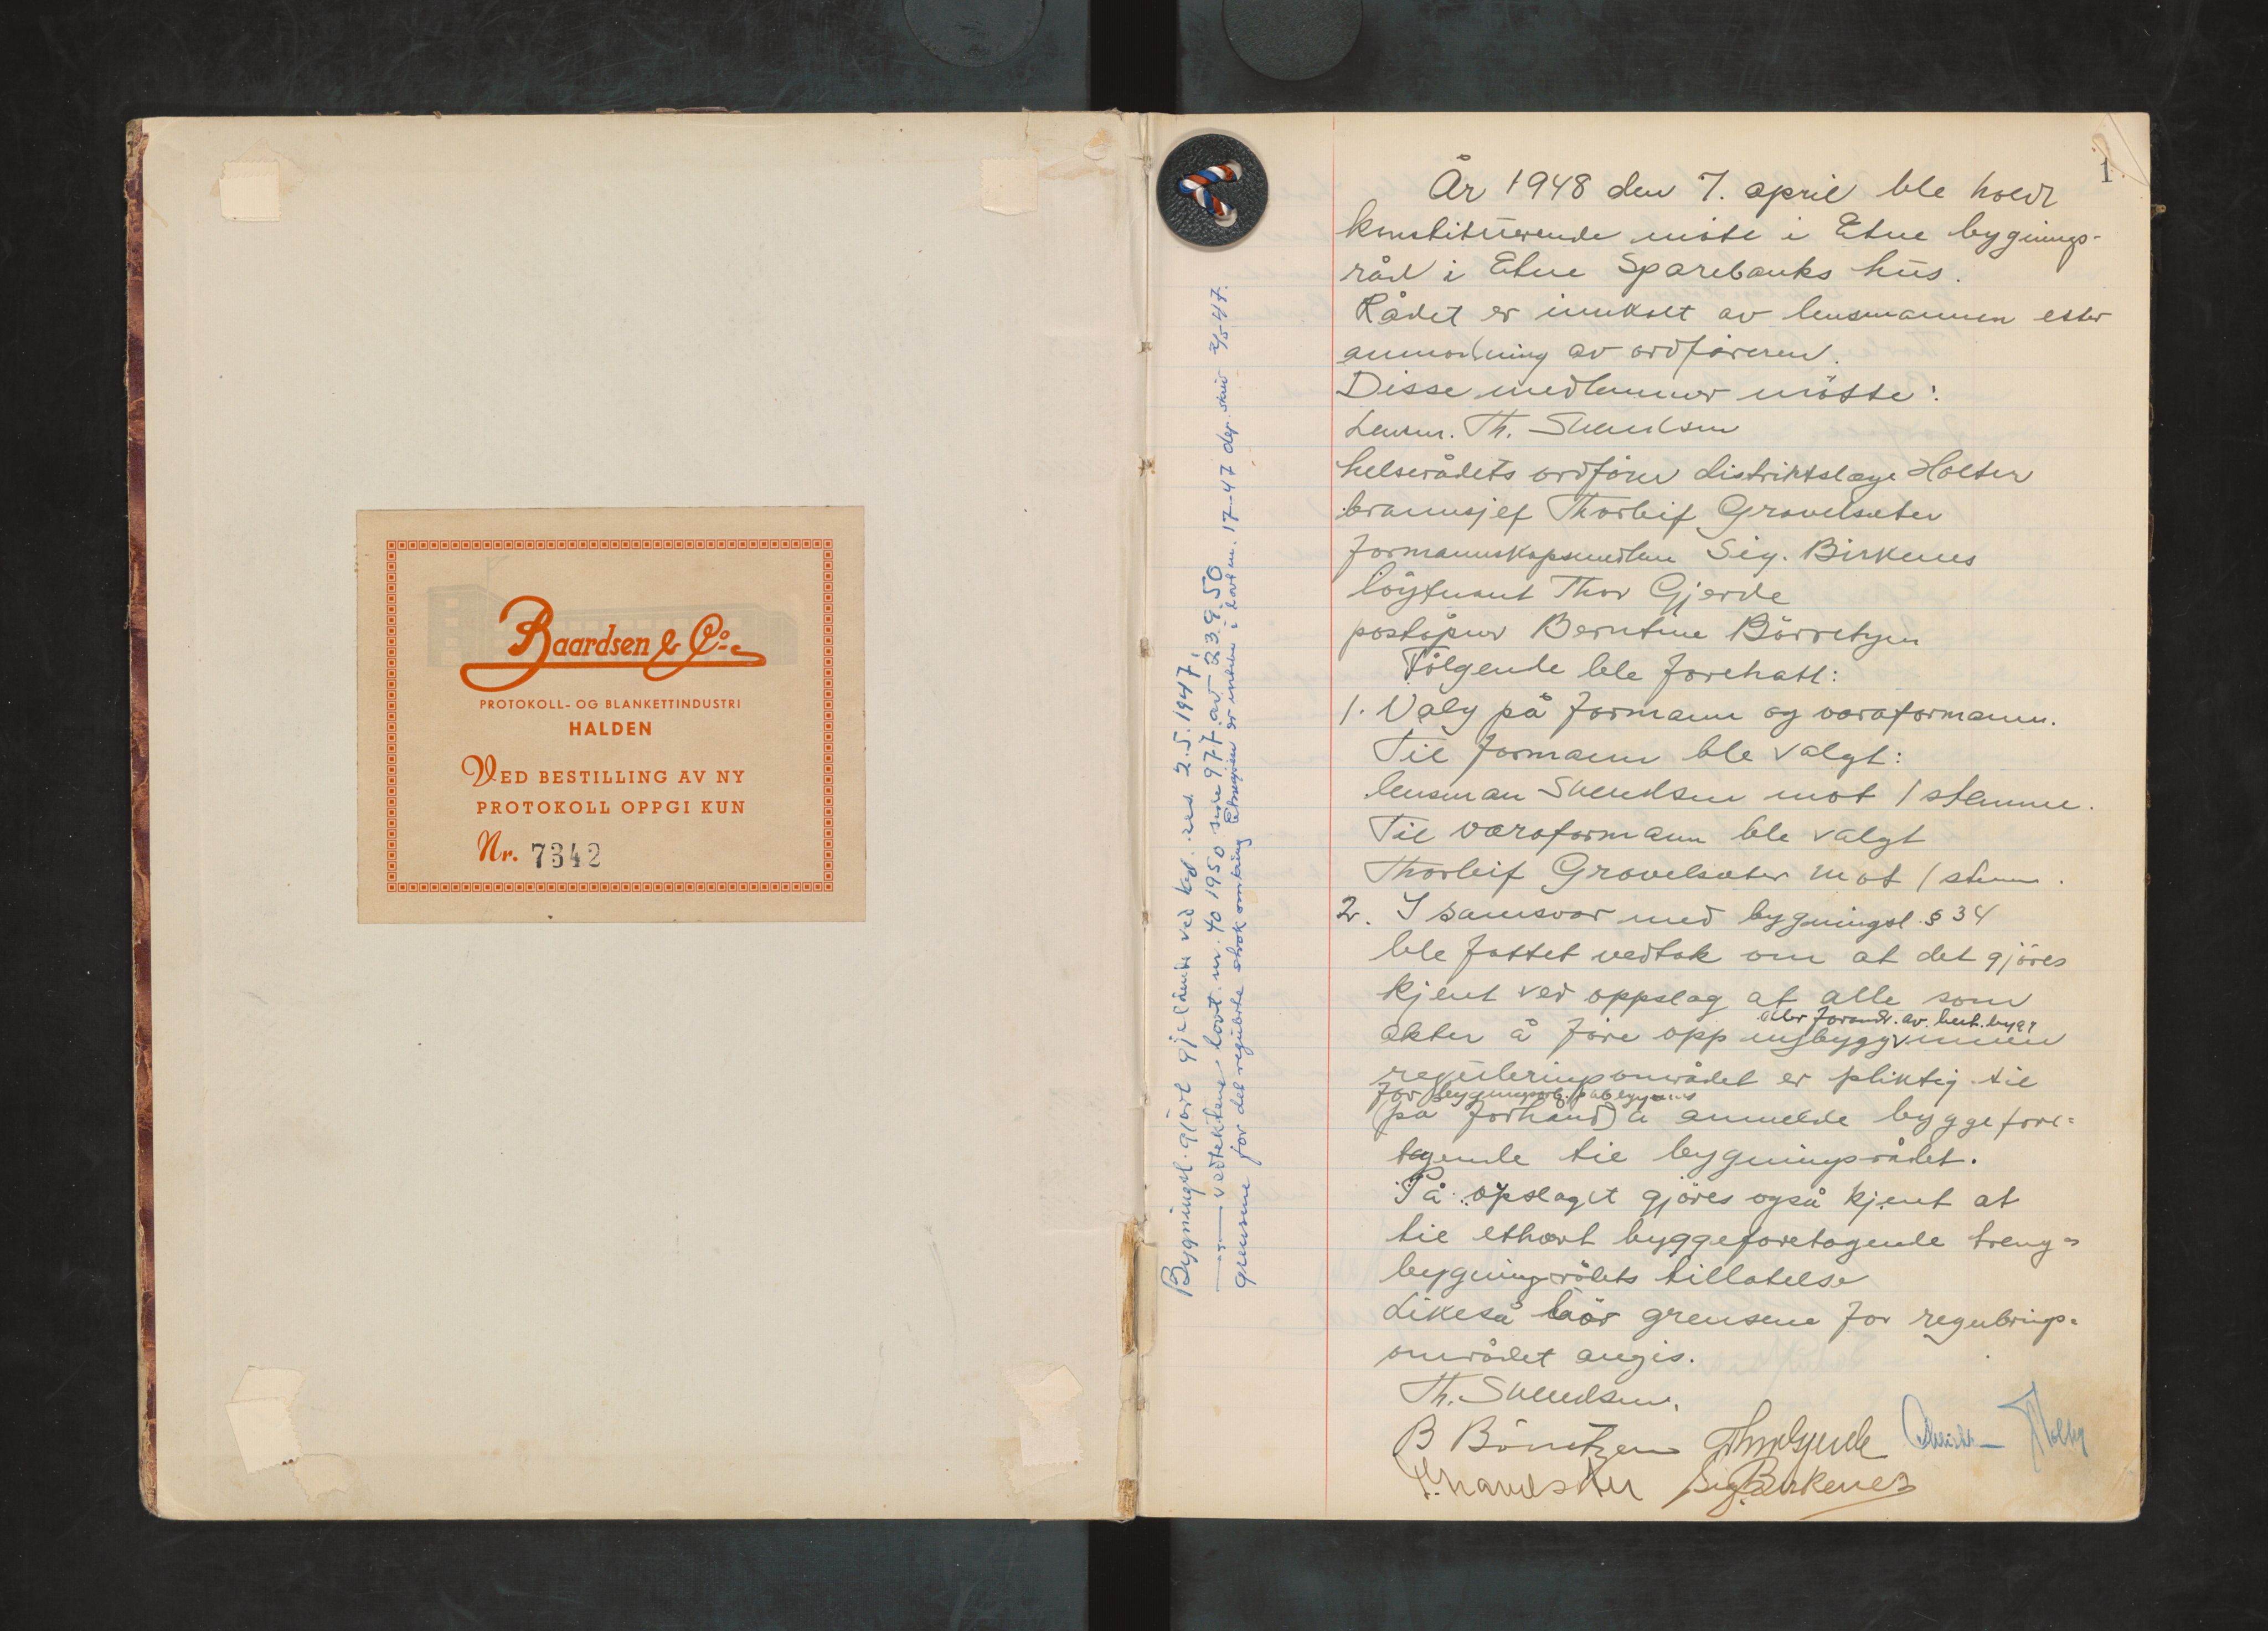 Baardsen & Co
PROTOKOLL- OG BLANKETTINDUSTRI
HALDEN
VED BESTILLING AV NY
PROTOKOLL OPPGI KUN
Nr. 7342
Bygningsl. gjort gjeldende ved kgl. res. 2.5.1947.
—"— vedtektene lovt. nr. 40 1950 side 977 av 23.9.50
grensene for det regulerte strøk omkring Etnesjøen er inntatt i lovt nr. 17-47 dep. skriv 2/5-47.
1
År 1948 den 7. april ble holdt
konstituerende möte i Etne bygnings-
råd i Etne Sparebanks hus.
Rådet er innkalt av lensmannen etter
anmodning av ordföreren.
Disse medlemmer mötte:
Lensm. Th. Svendsen
helserådets ordförer distriktslæge Holter
brannsjef Thorleif Gravelsæter
formannskapsmedlem Sig. Birkenes
löytnant Thor Gjerde
poståpner Berntine Börretzen
Fölgende ble forehatt:
1. Valg på formann og varaformann.
Til formann ble valgt:
lensman Svendsen mot 1 stemme.
Til varaformann ble valgt
Thorleif Gravelsæter mot 1 stemme.
2. I samsvar med bygningsl. § 34
ble fattet vedtak om at det gjöres
kjent ved oppslag at alle som
eller forandr. av best. bygg
akter å före opp nybygg innen
reguleringsområdet er pliktig til
för bygningsarb. påbegynnes
(på forhånd) å anmelde byggefore-
tagende til bygningsrådet.
På opslaget gjöres også kjent at
til ethvert byggeforetagende trengs
bygningsrådets tillatelse
Likeså bör grensene for regulerings-
området angis.
Th. Svendsen.
B Börretzen Thor Gjerde Holter
Th. Gravelsæter Sig. Birkenes